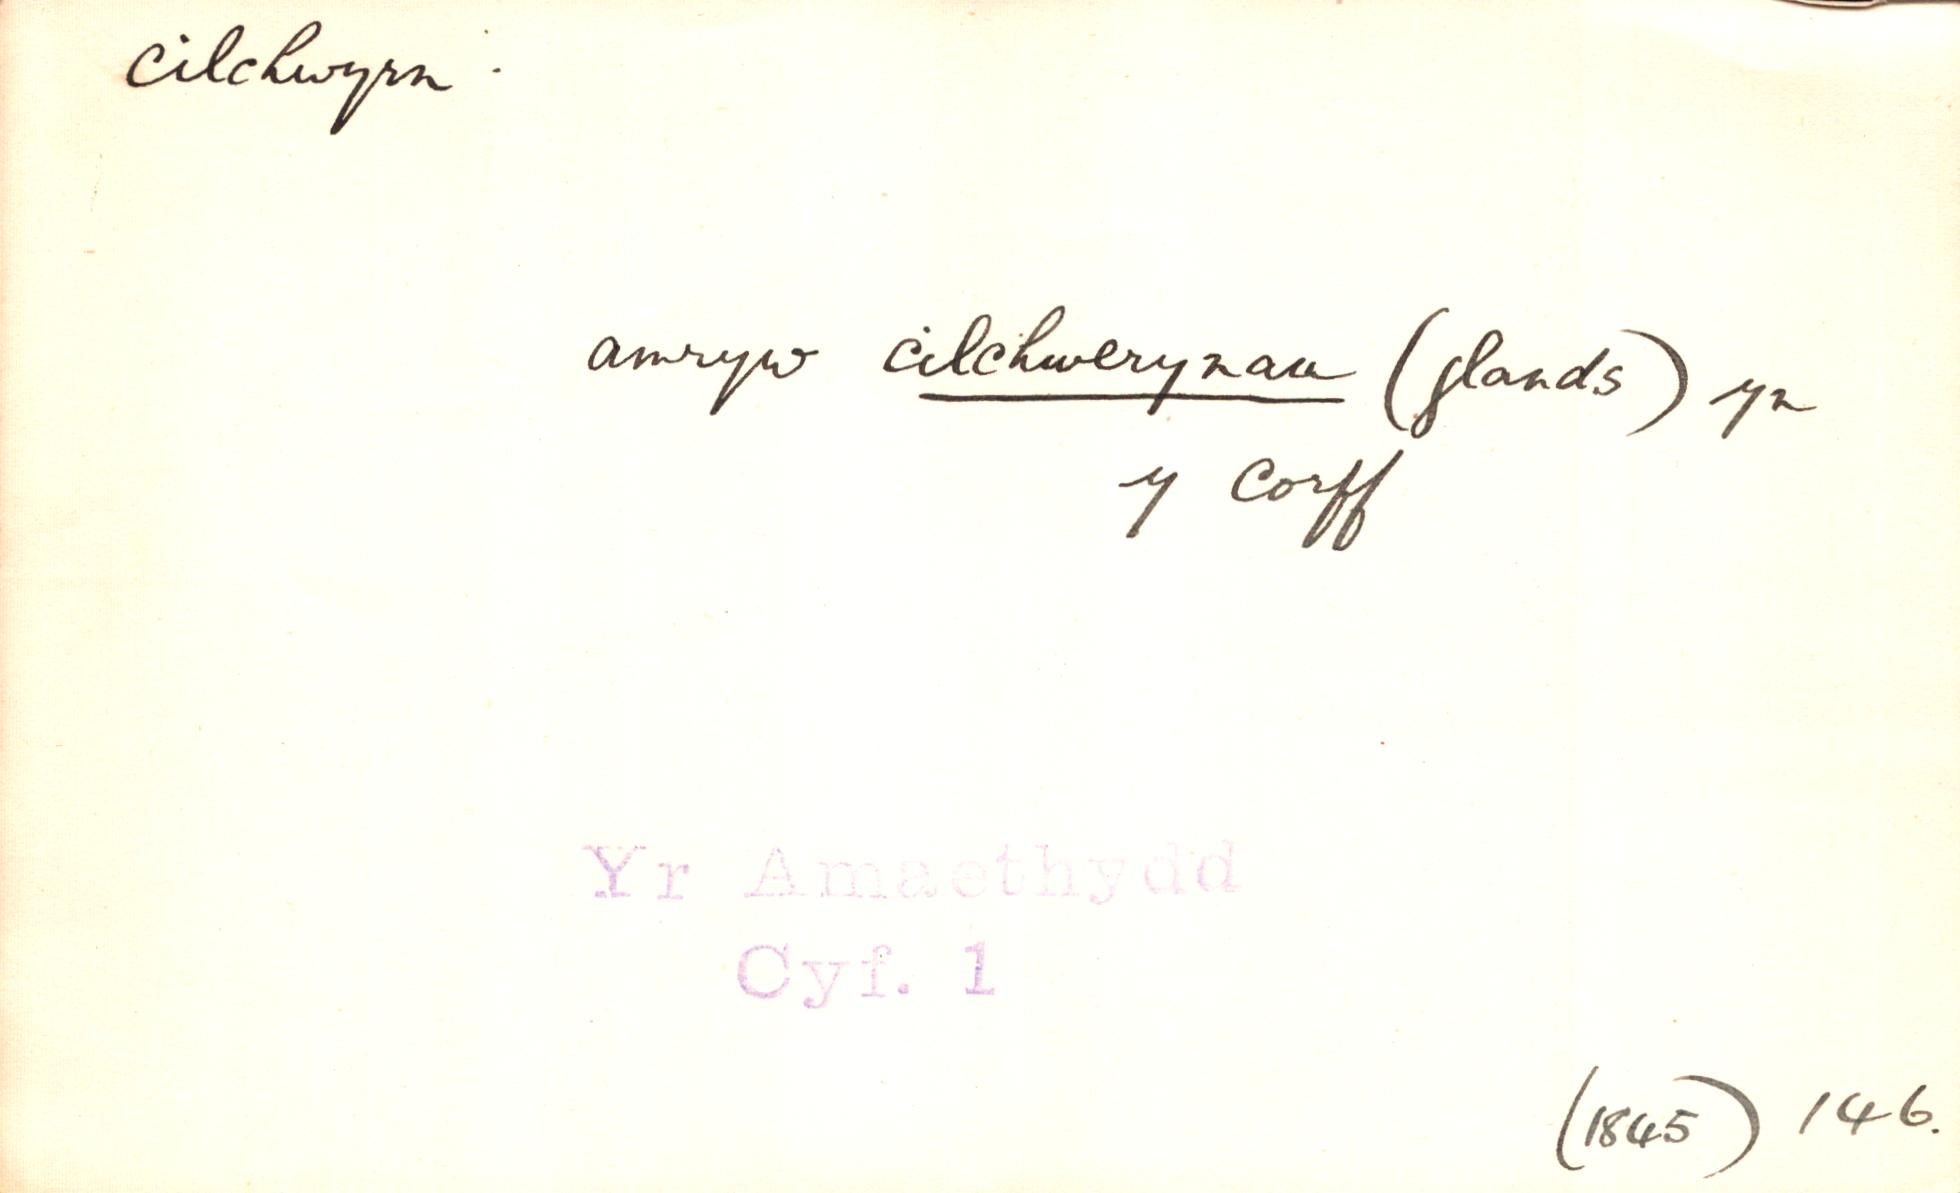 cilchwyrn.
amryw cilchwerynau (glands) yn
y corff
Yr Amaethydd
Cyf. 1
(1845) 146.